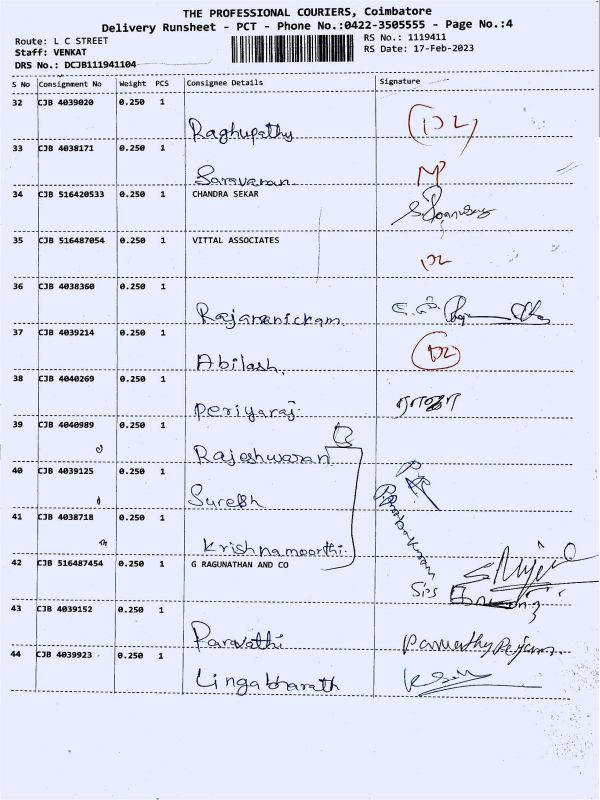 THE PROFESSIONAL COURIERS, Coimbatore
Delivery Runsheet - PCT - Phone No.:0422-3505555 - Page No.:4
Route: L C STREET
RS No.: 1119411
Staff: VENKAT
RS Date: 17-Feb-2023
DRS No.: DCJB111941104
S No Consignment No Weight PCS Consignee Details Signature
32 CJB 4039020 0.250 1
Raghupathy
33 CJB 4038171 0.250 1
Saravanan
34 CJB 516420533 0.250 1 CHANDRA SEKAR
35 CJB 516487054 0.250 1 VITTAL ASSOCIATES
36 CJB 4038360 0.250 1
Rajamanickam
37 CJB 4039214 0.250 1
Abilash
38 CJB 4040269 0.250 1
Periyaraj
39 CJB 4040989 0.250 1
Rajeshwaran
40 CJB 4039125 0.250 1
Suresh
41 CJB 4038718 0.250 1
Krishnamoorthi
42 CJB 516487454 0.250 1 G RAGUNATHAN AND CO
43 CJB 4039152 0.250 1
Parvathi
44 CJB 4039923 0.250 1
Lingabharath